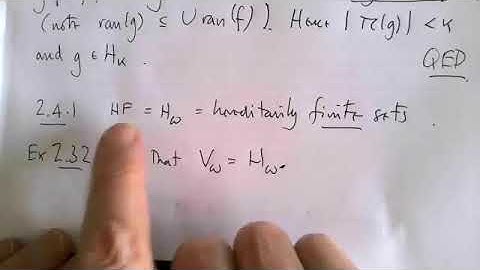 (note ran(g) ⊆ ∪ran(f)). Hence |TC(g)| < κ
and g ∈ Hκ. QED
2.4.1 HF = Hω = hereditarily finite sets.
Ex 2.32 that Vω = Hω.